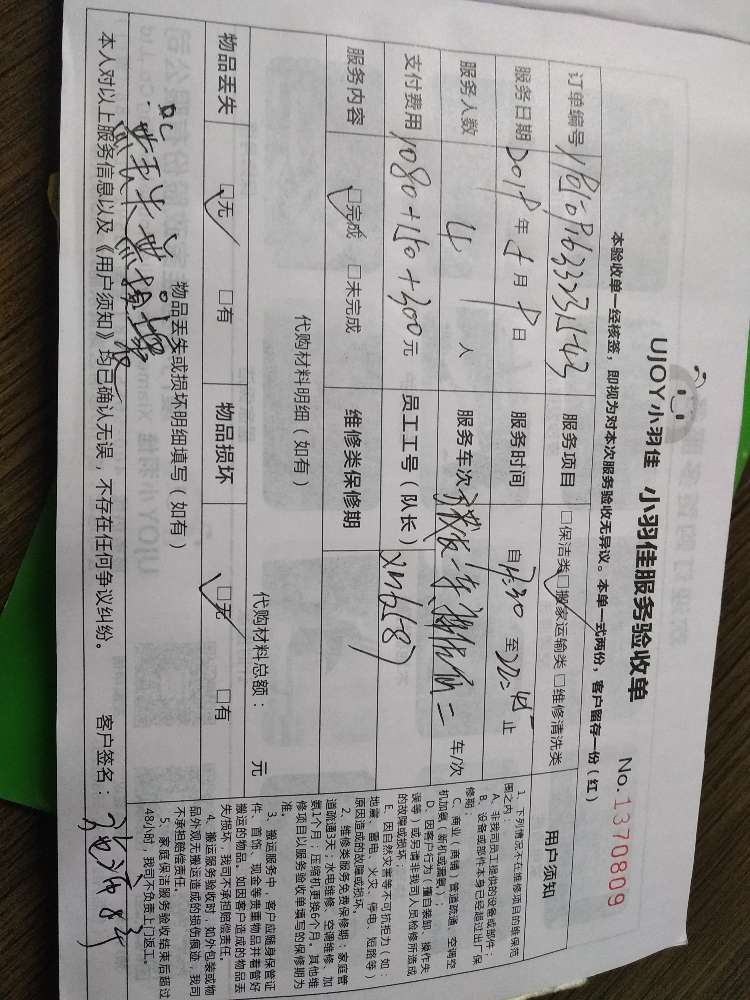 UJOY小羽佳 小羽佳服务验收单 No.1370809
本验收单一经核签,即视为对本次服务验收无异议。本单一式两份,客户留存一份(红)
订单编号 服务项目 □保洁类□搬家运输类 □维修清洗类
服务日期 2018年5月8日 服务时间 自 17:30 至 22:45 止
服务人数 4 人 服务车次 二 车/次
支付费用 1080+150+300元 员工工号(队长)
服务内容 □完成 □未完成 维修类保修期
代购材料明细(如有) 代购材料总额: 元
物品丢失 □无 □有 物品损坏 □无 □有
物品丢失或损坏明细填写(如有)
本人对以上服务信息以及《用户须知》均已确认无误,不存在任何争议纠纷。 客户签名:
用户须知
1、下列情况不在维修项目的维保范
围之内:
A、非我司员工提供的设备或部件;
B、设备或部件本身已经超过出厂保
修期;
C、商业(商铺)管道疏通、空调空
机加氨(新机或漏氨);
D、因客户行为(擅自装卸、操作失
误等)或另请非我司人员检修所造成
的故障或损坏;
E、因自然灾害等不可抗拒力(如:
地震、雷电、火灾、停电、短路等)
原因造成的故障或损坏。
2、维修类服务免费保修期:家庭管
道疏通3天;水电维修、空调维修、加
氨1个月;压缩机更换6个月。其他维
修项目以服务验收单填写的保修期为
准。
3、搬运服务中,客户应随身保管证
件、首饰、现金等贵重物品并看管好
搬运的物品。如因客户造成的物品丢
失/损坏,我司不承担赔偿责任。
4、搬运服务验收时,如外包装或物
品外观无搬运造成的损伤痕迹,我司
不承担赔偿责任。
5、家庭保洁服务验收结束后超过
48小时,我司不负责上门返工。